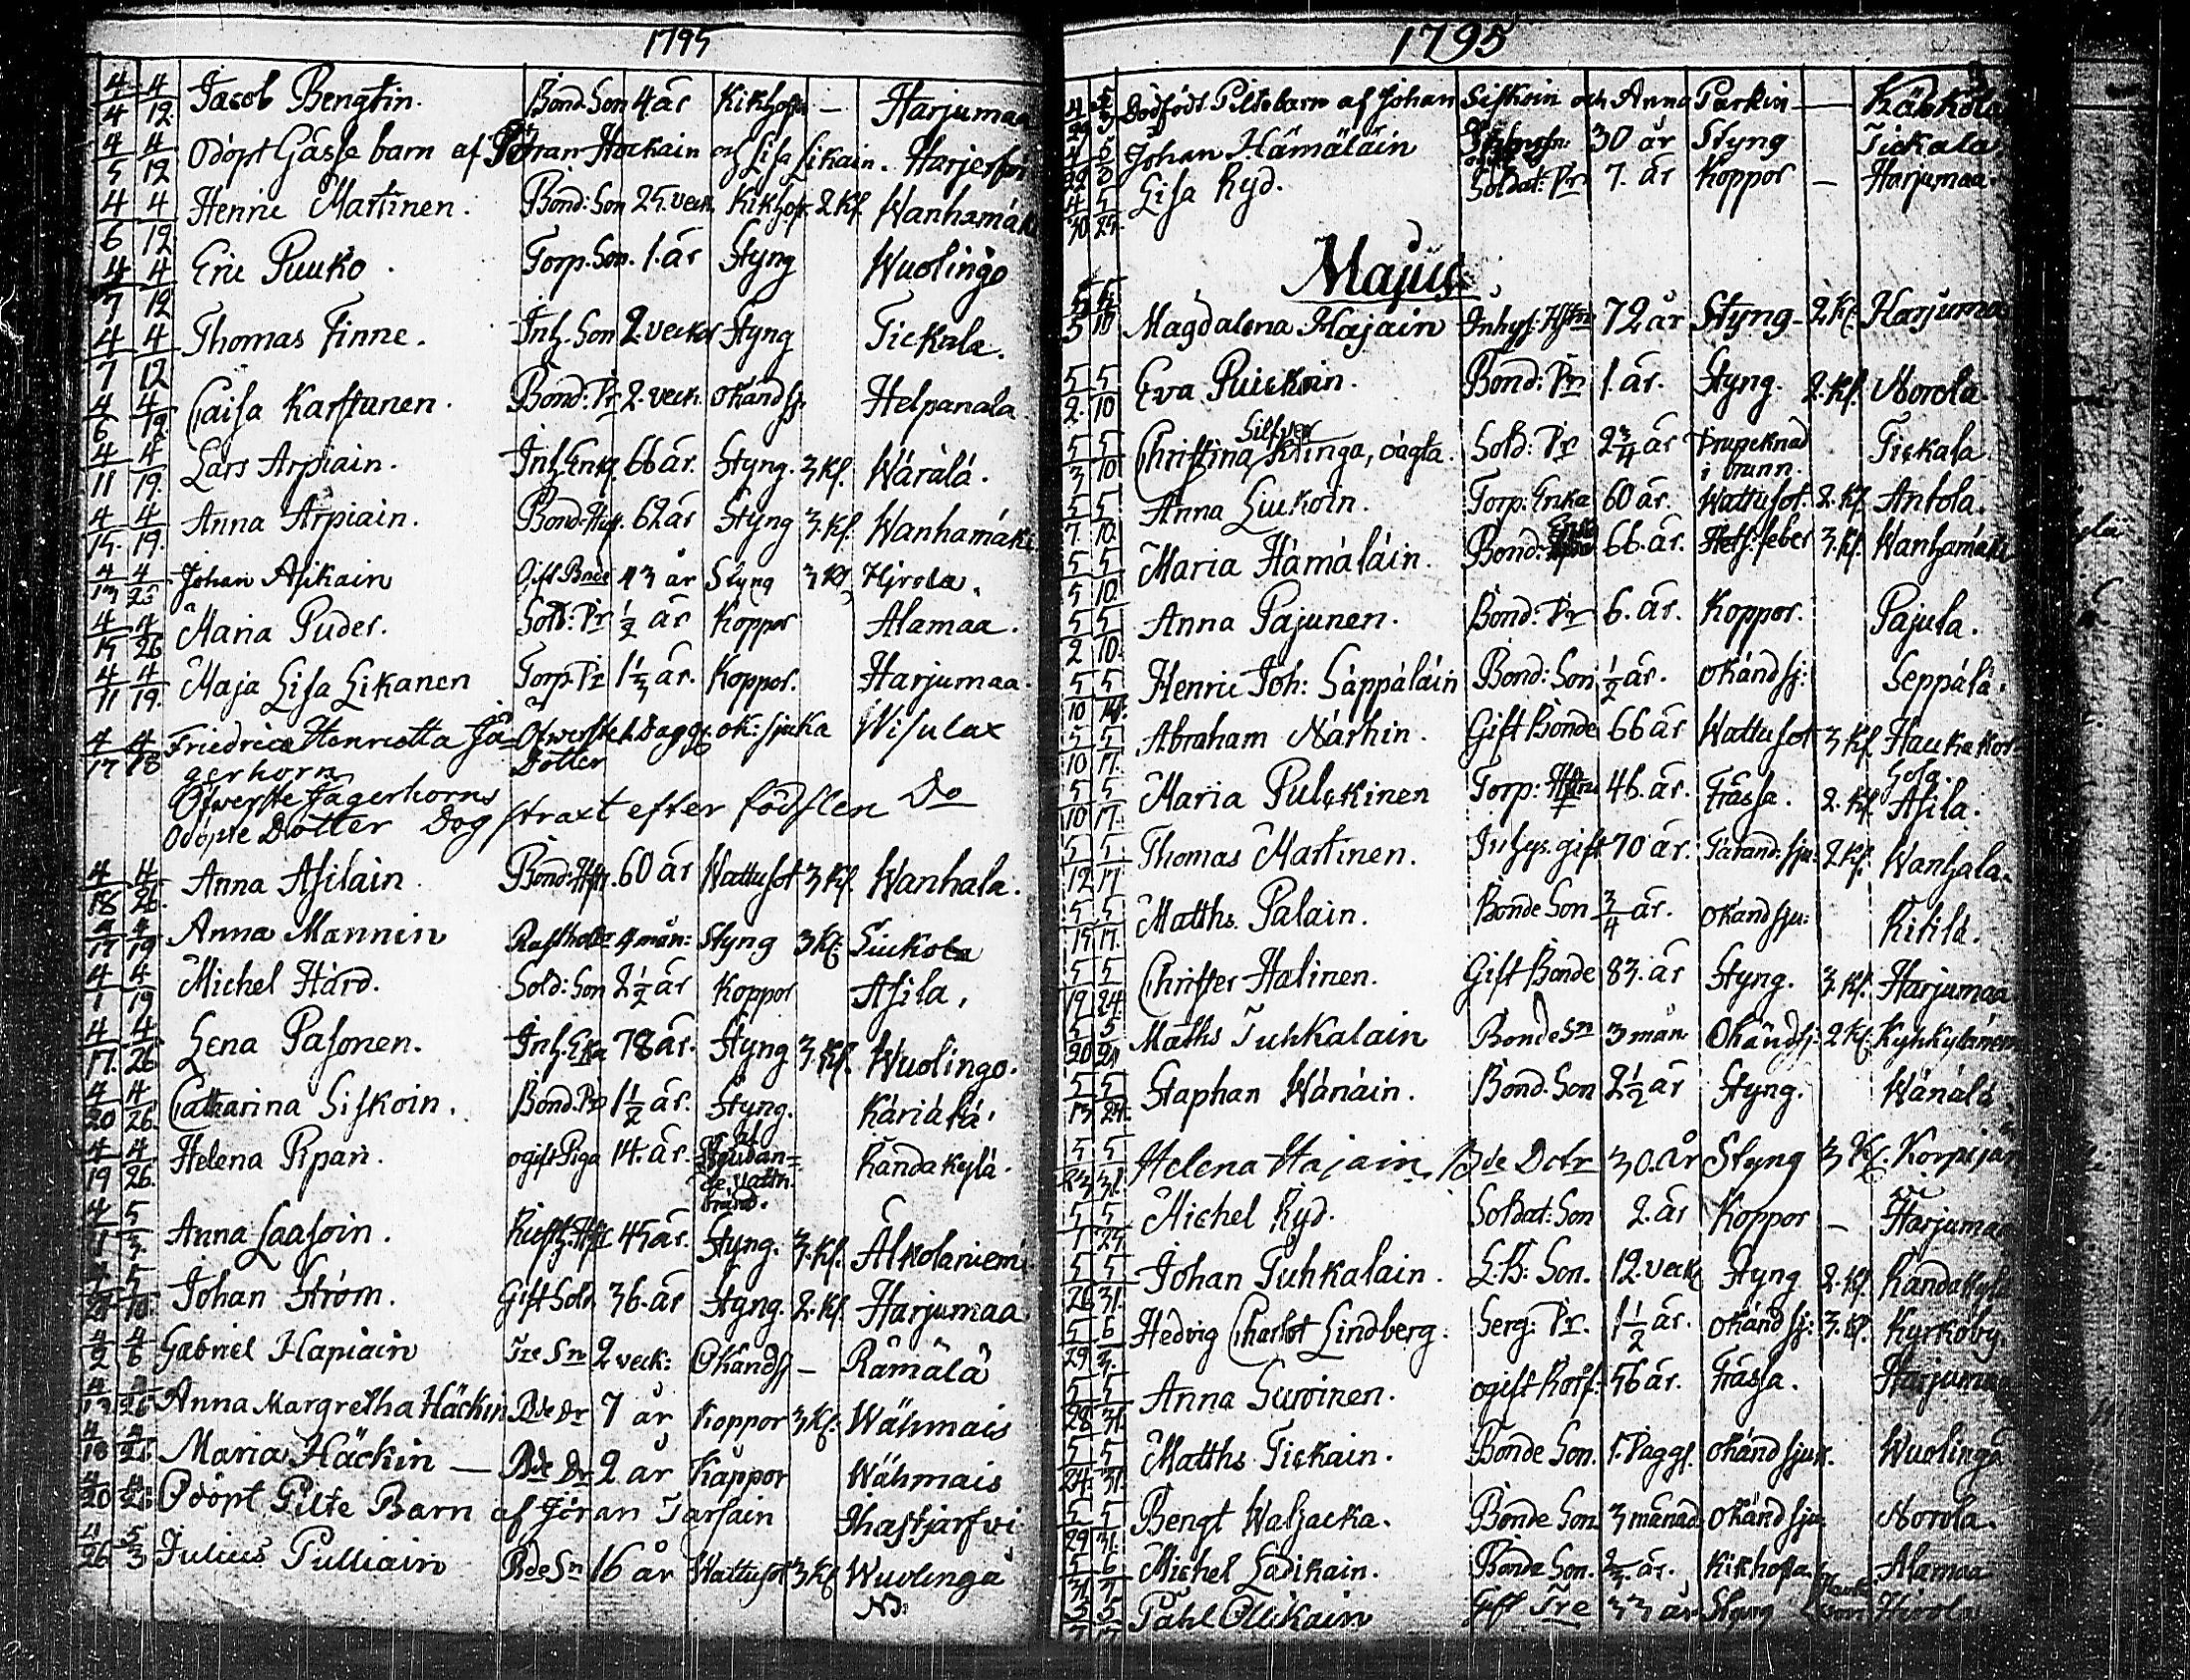 1795
4/4 4/12 Jacob Bengtin. Bond. Son 4. år Kikhosta — Harjumaa
4/5 4/12 Odöpt Gåsse barn af Jöran Hockain och Lisa Likain. Harjerfvi
4/6 4/12 Henric Martinen. Bond: Son 25. veck. Kikhost. 2 Kl. Wanhamäki
4/7 4/12 Eric Puuko. Torp. Son. 1. år Styng Wuolingo
4/7 4/12 Thomas Finne. Inh. Son 2. veckor Styng Tickala.
4/6 4/12 Caisa Karstunen. Bond: Pr 2. veck. okänd sj. Helpanala.
4/11 4/19. Lars Arpiain. Inh. Enkl. 66 år. Styng. 3 Kl. Wärälä.
4/15. 4/19. Anna Arpiain. Bond. Hust. 62 år Styng 3. Kl. Wanhamäki
4/13 4/26 Johan Asikain Gift Bnde 43 år Styng 3 Kl. Hirola.
4/15 4/26 Maria Puder. Sold: Pr ½ år Koppor Alamaa.
4/11 4/19. Maja Lisa Likanen Torp. Pr 1⅓ år. Koppor. Harjumaa.
4/17 4/18 Friedrica Henrietta Jä- Öfwerste 1. Dagg. ok: sjuka Wisulax
gerhorn Dotter
Öfwerste Jägerhorns
Odöpte Dotter Dog straxt efter födslen Do
4/18 4/26. Anna Asilain. Bond: Hstr. 60 år Wattusot 3 Kl. Wanhala.
4/17 4/19 Anna Mannin Rustholls 4 mån: Styng 3 Kl: Liukola
4/1 4/19 Michel Hård. Sold: Son 2½ år Koppor Asila.
4/17. 4/26 Lena Pasonen. Inh. Eka 78 år. Styng 3. Kl. Wuolingo.
4/20 4/26. Catharina Siskoin. Bond. Pr 1½ år. Styng. Käriälä.
4/19 4/26. Helena Pipari. ogift Piga 14. år. af Sjudan=
de vattn. Kandakylä.
bränd.
4/1 5/3. Anna Laasoin. Rusth. Hstr 45 år. Styng. 3. Kl. Alkolaniemi
5/10 Johan Ström. Gift Sold. 36. år Styng. 2. Kl. Harjumaa
4/2 4/6 Gabriel Hapiain Tre Sn 2 veck: Okänd sj — Rämälä
4/13 4/26 Anna Margretha Häckin Bde Dr 7 år Koppor 3 Kl: Wähmais
4/18 4/26. Maria Häckin — Bde Dr 2 år Kappor Wähmais
4/20 4/26: Odöpt Pilte Barn af Jöran Tarsain Ihastjärfvi
4/26 5/3 Julius Pulliain Bde Sn 16 år Wattusot 3 Kl Wuolinga
NB:
1795
4/29 5/3 Dödfödt Piltebarn af Johan Siskoin och Anna Parkin — Käckölä
4/29 5/3 Johan Hämäläin 30 år Styng Tickala
4/30 5/25. Lisa Ryd. Soldat: Pr 7. år Koppor — Harjumaa.
Majus
5/5 5/10 Magdalena Hajain Inhys: Hstru 72 år Styng - 2 Kl. Harjumaa
5/2. 5/10 Eva Puickoin. Bond: Pr 1. år. Styng. 2. Kl. Norola.
Silfver
5/3 5/10 Christina Klinga, oägta. Sold: Pr 2¾ år Drunknad Tickala.
i brunn.
5/7 5/10. Anna Liukoin. Torp: Enka 60 år. Wattusot. 2. Kl. Antola.
5/5 5/10. Maria Hämäläin. Bond: Enka 66. år. Hets. feber 3. Kl. Wanhamäki
5/2 5/10. Anna Pajunen. Bond: Pr 6. år. Koppor. Pajula.
5/10 Henric Joh: Säppäläin Bond: Son ½ år. okänd sj: Seppälä.
5/10 5/17. Abraham Närhin. Gift Bonde 66 år Wattusot 3 Kl. Haukakor-
hola.
5/10 5/17. Maria Pulckinen Torp: Hstru 46. år. Frassa. 2. Kl. Asila.
5/12 5/17 Thomas Martinen. Inhys. gift 70 år. Tärand: sju: 2 Kl. Wanhala.
5/15 5/17. Matths. Palain. Bonde Son ¾ år. okänd sju: Kitilä.
5/19 5/24. Christer Halinen. Gift Bonde 83. år Styng. 3. Kl. Harjumaa
5/20 5/24 Maths Tuhkalain Bonde Sn 3 mån Okänd sj: 2 Kl: Kyhkylänem
5/13 5/24. Staphan Wänäin. Bond. Son 2½ år Styng. Wänälä
5/23 5/31. Helena Hajain, Bde Dotr 30. år Styng 3 Kl. Korpijär
5/1 5/25 Michel Ryd. Soldat: Son 2. år Koppor — Harjumaa
5/26 5/31. Johan Tuhkalain. L: B: Son. 12. veck Styng 2. Kl. Kandakylä
5/29 6/3. Hedvig Charlot Lindberg. Serg: Pr. 1½ år. okänd sj: 3. Kl. Kyrkoby.
5/28 5/31. Anna Suvoinen. ogift 56 år. Frassa. Harjumaa
5/24. 5/31. Matths Tickain. Bonde Son. 1. Daggl. okänd sjuk. Wuolingo
5/29 5/31. Bengt Waljacka. Bonde Son 3 månad okänd sju Norola.
5/31 6/7 Michel Ladikain. Bonde Son. ⅔ år. Kikhosta Alamaa
5 5 Påhl Ollikain Gift Tre 33 år Styng Hirola